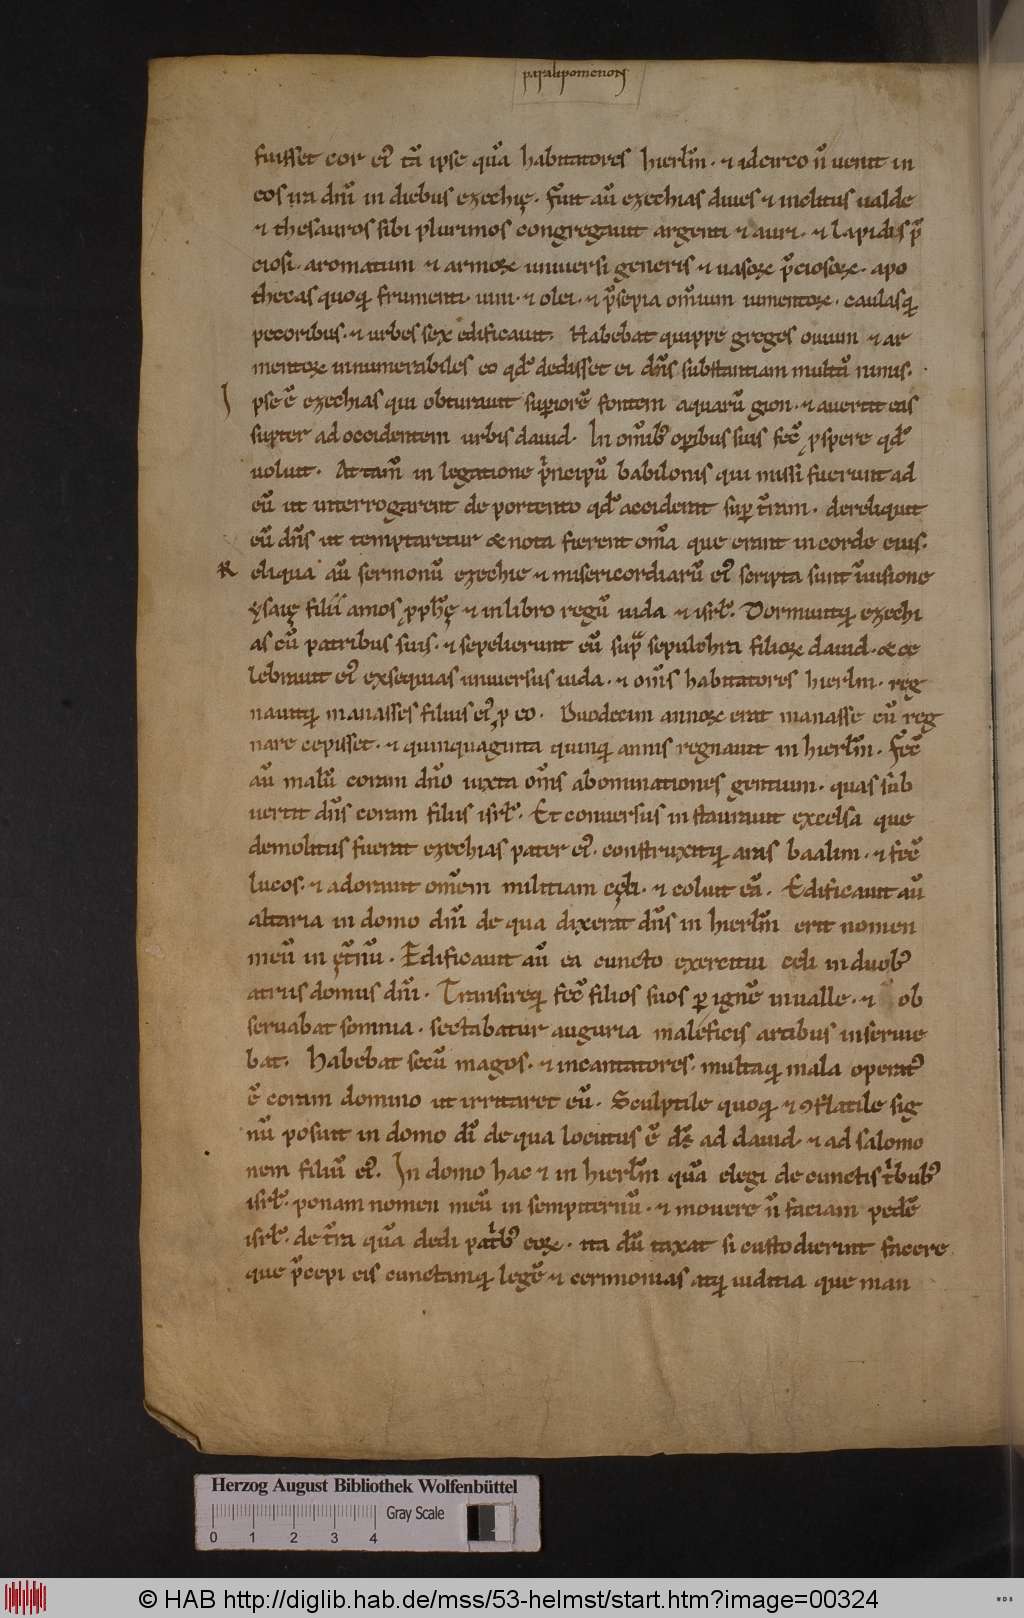 paralipomenon
fuisset cor ei᾽ tā ipse quā habitatores hierl̄m. ⁊ idcirco n̄ uenit in
eos ira dn̄i in diebus ezechię. Fuit aū ezechias diues ⁊ inclitus ualde
⁊ thesauros sibi plurimos congregauit argenti ⁊ auri. ⁊ lapidis p̄
ciosi. aromatum ⁊ armoꝝ uniuersi generis ⁊ uasoꝝ p̄ciosoꝝ. apo
thecas quoqꝫ frumenti. uini. ⁊ olei. ⁊ p̄sepia om̄ium iumentoꝝ. caulasqꝫ
pecoribus. ⁊ urbes sex edificauit. Habebat quippe greges ouium ⁊ ar
mentoꝝ innumerabiles eo qd̄ dedisset ei dn̄s substantiam multā nimis.
Ipse ē ezechias qui obturauit supiorē fontem aquarū gion. ⁊ auertit eas
supter ad occidentem urbis dauid. In om̄ibꝰ opibus suis fec̄ ꝓspere qd̄
uoluit. Attam̄ in legatione p̄ncipū babilonis qui missi fuerunt ad
eū ut interrogarent de portento qd̄ acciderat sup t̄ram. dereliquit
eū dn̄s ut temptaretur & nota fierent om̄a que erant in corde eius.
Reliqua aū sermonū ezechie ⁊ misericordiarū ei᾽ scripta sunt ī uisione
ysaię filii amos ꝓph̄ę ⁊ in libro regū iuda ⁊ isrl̄. Dormiuitqꝫ ezechi
as cū patribus suis. ⁊ sepelierunt eū sup̄ sepulchra filioꝝ dauid. & ce
lebrauit ei᾽ exsequias uniuersus iuda. ⁊ om̄s habitatores hierlm. reg
nauitqꝫ manasses filius ei᾽ ꝓ eo. Duodecim annoꝝ erat manasse cū reg
nare cepisset. ⁊ quinquaginta quinqꝫ annis regnauit in hierl̄m. Fec̄
aū malū coram dn̄o iuxta om̄s abominationes gentium. quas sub
uertit dn̄s coram filiis isrl̄. Et conuersus instaurauit excelsa que
demolitus fuerat ezechias pater ei᾽. construxitqꝫ aras baalim. ⁊ fec̄
lucos. ⁊ adorauit om̄em militiam cęli. ⁊ coluit eā. Edificauit aū
altaria in domo dn̄i de qua dixerat dn̄s in hierl̄m erit nomen
meū in ęt̄nū. Edificauit aū ea cuncto exercitui celi in duobꝰ
atriis domus dn̄i. Transireqꝫ fec̄ filios suos ꝑ ignē in ualle. ⁊ ob
seruabat somnia. sectabatur auguria maleficis artibus inseruie
bat. Habebat secū magos. ⁊ incantatores. multaqꝫ mala operat᾽
ē coram domino ut irritaret eū. Sculptile quoqꝫ ⁊ ꝯflatile sig
nū posuit in domo dī de qua locutus ē dꝰs ad dauid ⁊ ad salomo
nem filiū ei᾽. In domo hac ⁊ in hierl̄m quā elegi de cunctis t̄bubꝰ
isrl̄. ponam nomen meū in sempiternū. ⁊ mouere n̄ faciam pedē
isrl̄. de t̄ra quā dedi pat̄bꝰ eoꝝ. ita dū taxat si custodierint facere
que p̄cepi eis cunctamqꝫ legē ⁊ cerimonias atqꝫ iuditia que man
Herzog August Bibliothek Wolfenbüttel
Gray Scale
0 1 2 3 4
© HAB http://diglib.hab.de/mss/53-helmst/start.htm?image=00324